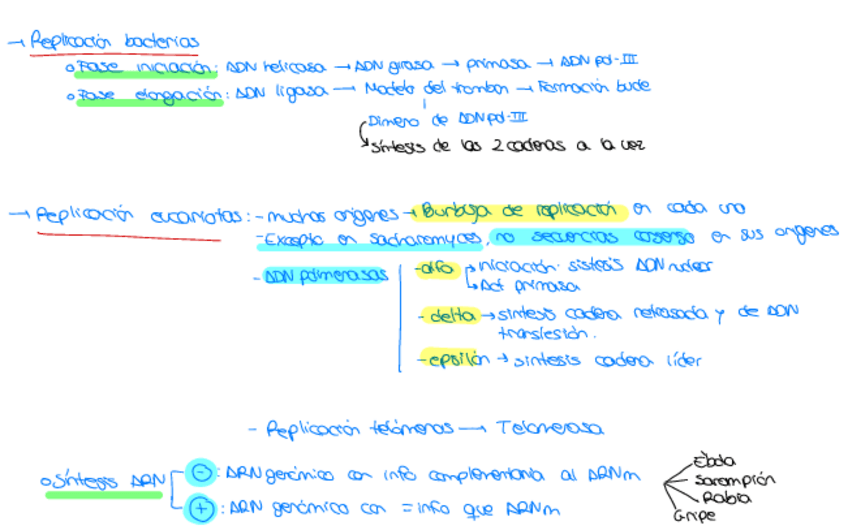 → Replicación bacterias
o Fase iniciación: ADN helicasa → ADN girasa → primasa → ADN pol-III
o Fase elongación: ADN ligasa — Modelo del trombon → Formación bucle
Dimero de ADN pol-III
síntesis de las 2 cadenas a la vez
→ Replicación eucariotas: - muchos orígenes → Burbuja de replicación en cada uno
- Excepto en sacharomyces, no secuencias consenso en sus orígenes
- ADN polimerasas
- alfa → iniciación: síntesis ADN nuclear
→ Act primasa
- delta → síntesis cadena retrasada y de ADN
translesión.
- epsilón → síntesis cadena líder
- Replicación telómeros → Telomerasa
o Síntesis ARN
⊖: ARN genómico con info complementaria al ARNm
⊕: ARN genómico con = info que ARNm
Ébola
Sarampión
Rabia
Gripe